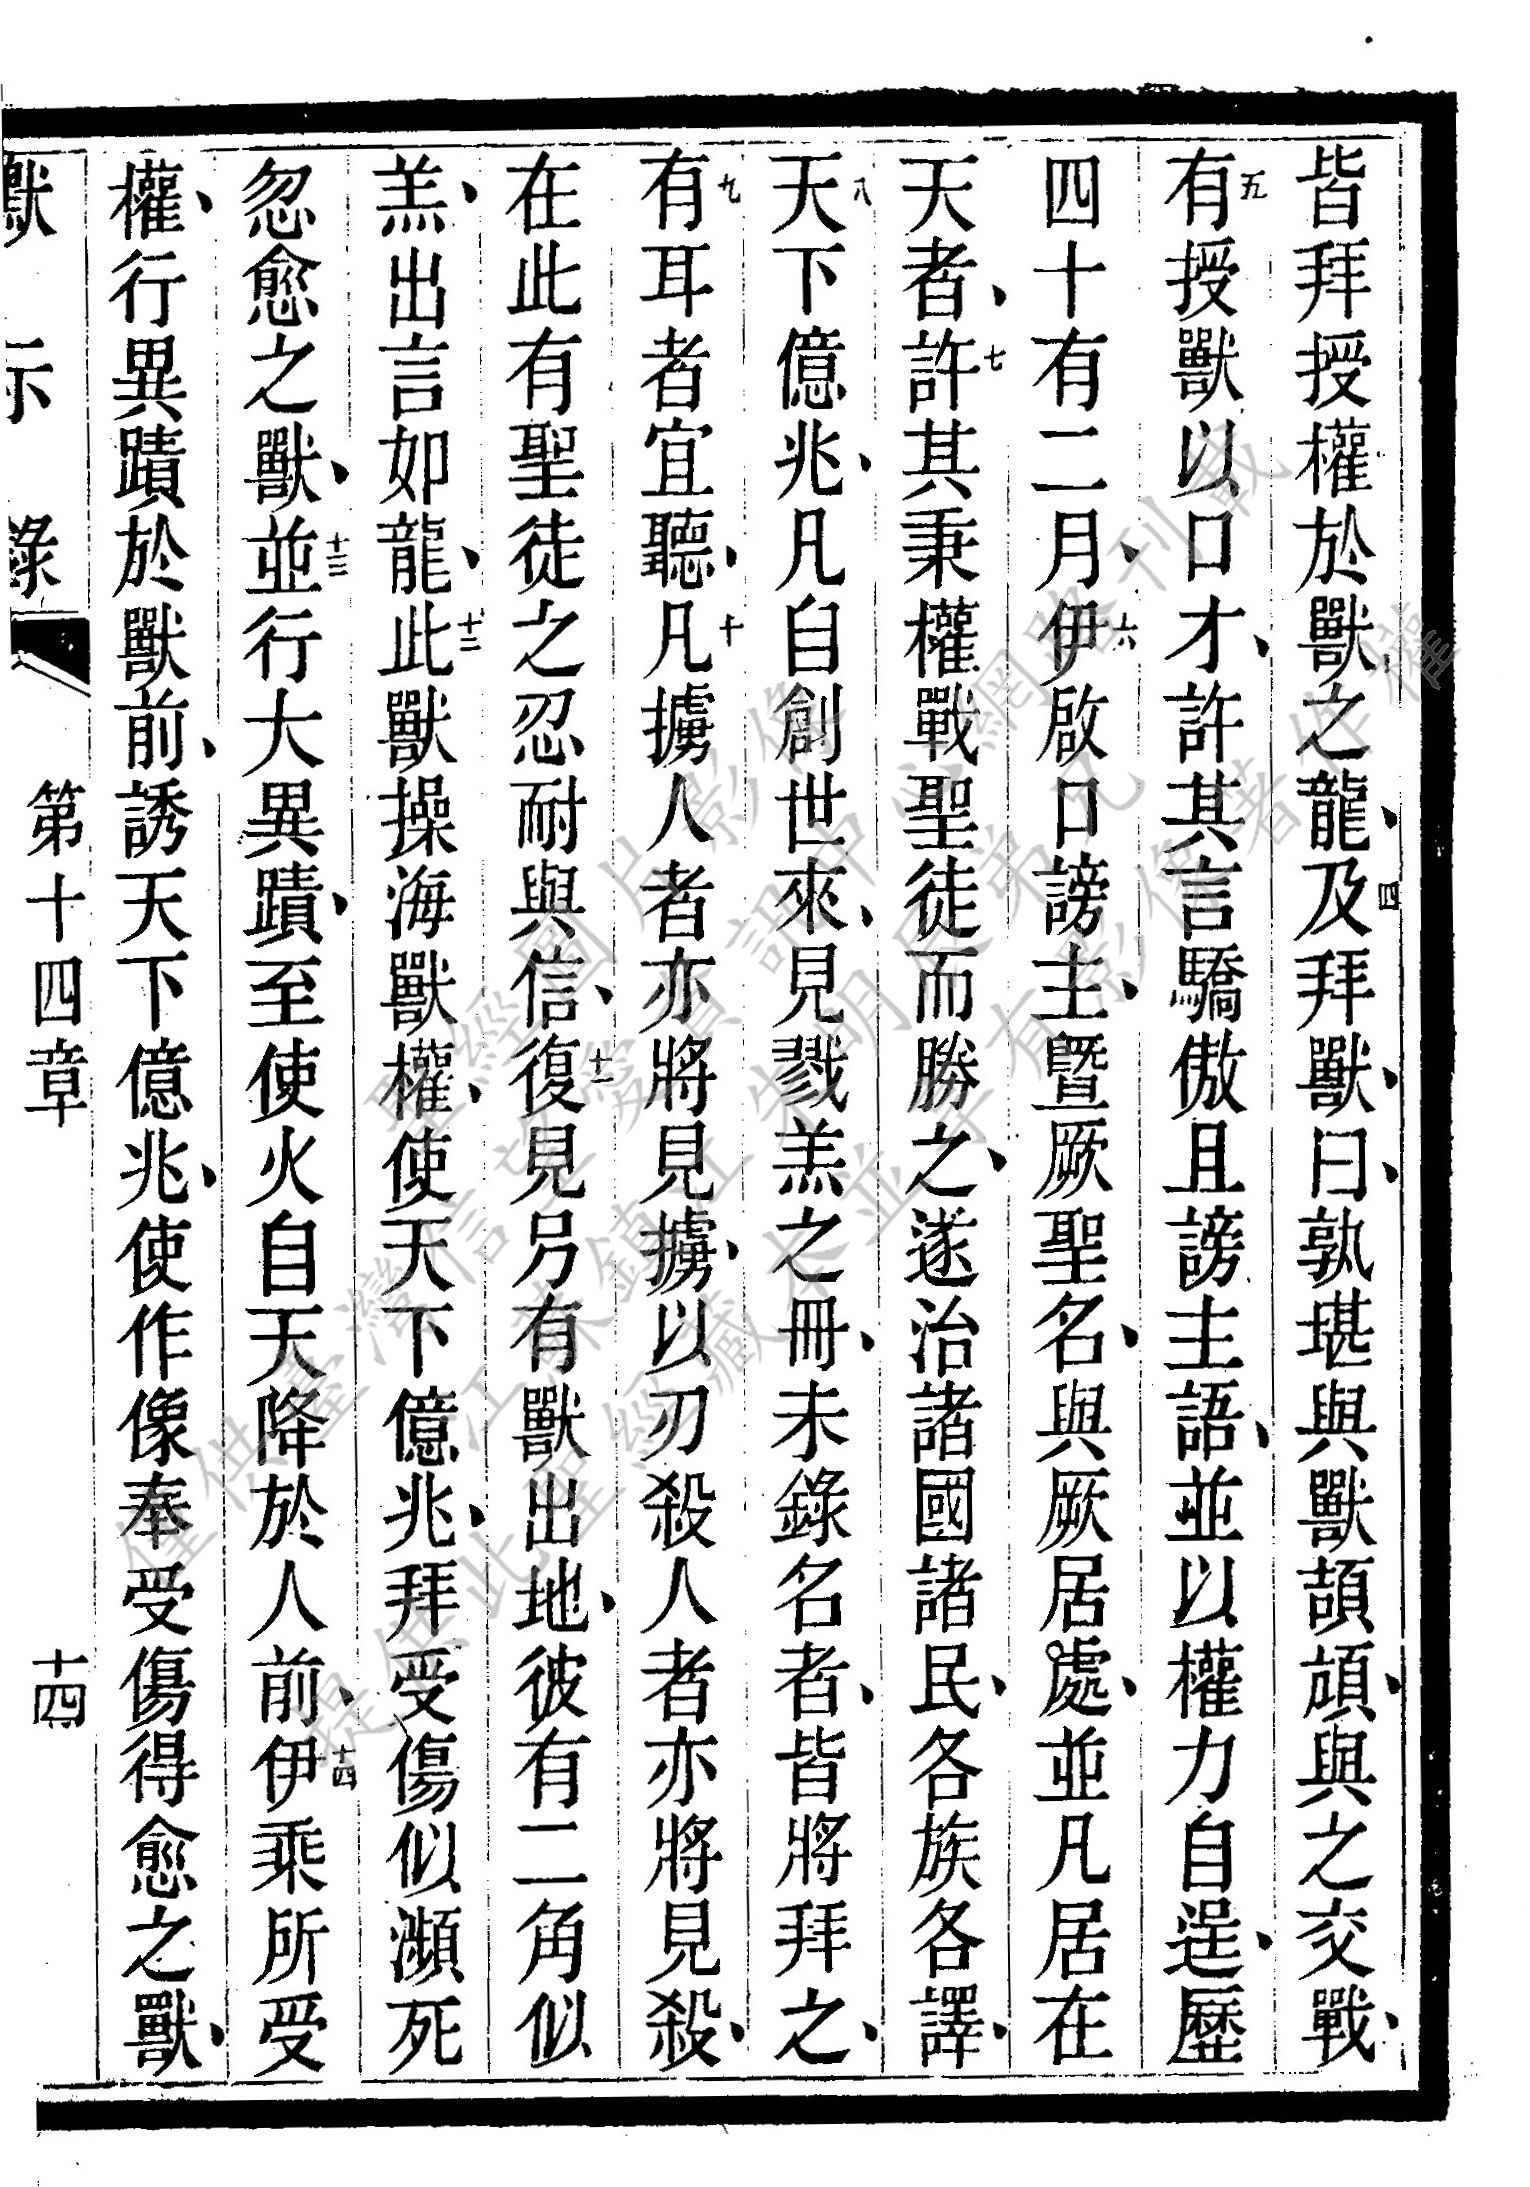 皆拜授權於獸之龍、四及拜獸、曰、孰堪與獸頡頏、與之交戰、
五有授獸以口才、許其言驕傲且謗主語、並以權力自逞、歷
四十有二月、六伊啟口謗主、暨厥聖名、與厥居處、並凡居在
天者、七許其秉權戰聖徒而勝之、遂治諸國諸民、各族各譯、
八天下億兆、凡自創世來、見戮羔之冊、未錄名者、皆將拜之、
九有耳者宜聽、十凡擄人者亦將見擄、以刃殺人者亦將見殺、
在此有聖徒之忍耐與信、十一復見另有獸出地、彼有二角似
羔、出言如龍、十二此獸操海獸權、使天下億兆、拜受傷似瀕死
忽愈之獸、十三並行大異蹟、至使火自天降於人前、十四伊乘所受
權、行異蹟於獸前、誘天下億兆、使作像奉受傷得愈之獸、
默示錄 第十四章 十四
僅供臺灣信望愛資訊中心網路刊載
聖經圖片影像
提供此聖經藏本並享有影像著作權